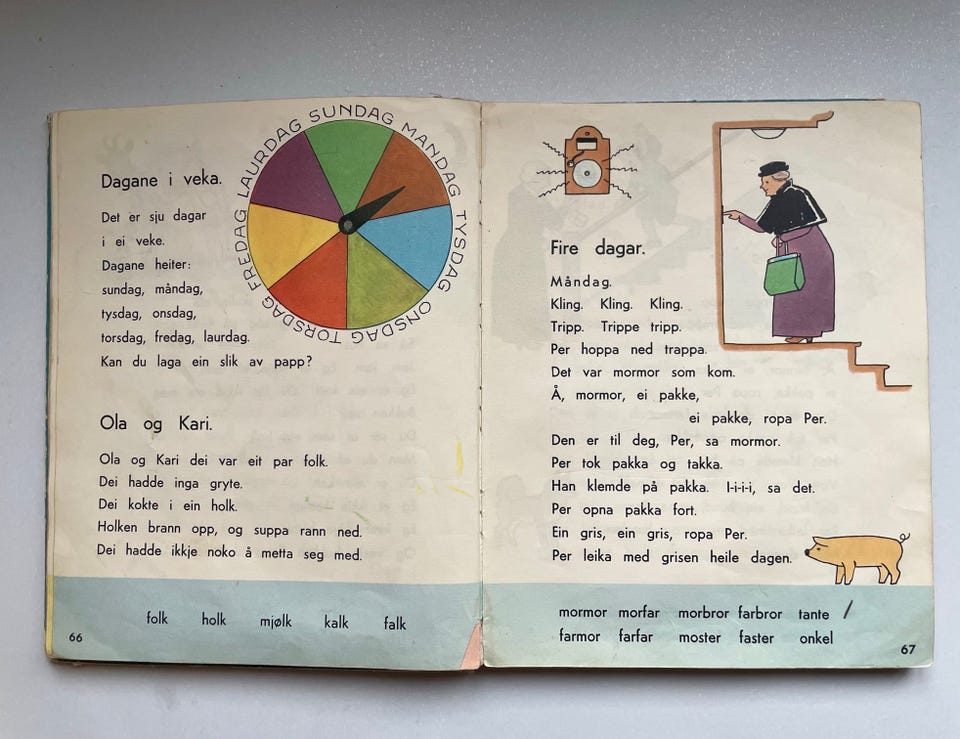 Dagane i veka.
Det er sju dagar
i ei veke.
Dagane heiter:
sundag, måndag,
tysdag, onsdag,
torsdag, fredag, laurdag.
Kan du laga ein slik av papp?
SUNDAG MANDAG TYSDAG ONSDAG TORSDAG FREDAG LAURDAG
Ola og Kari.
Ola og Kari dei var eit par folk.
Dei hadde inga gryte.
Dei kokte i ein holk.
Holken brann opp, og suppa rann ned.
Dei hadde ikkje noko å metta seg med.
folk holk mjølk kalk falk
66
Fire dagar.
Måndag.
Kling. Kling. Kling.
Tripp. Trippe tripp.
Per hoppa ned trappa.
Det var mormor som kom.
Å, mormor, ei pakke,
ei pakke, ropa Per.
Den er til deg, Per, sa mormor.
Per tok pakka og takka.
Han klemde på pakka. I-i-i-i, sa det.
Per opna pakka fort.
Ein gris, ein gris, ropa Per.
Per leika med grisen heile dagen.
mormor morfar morbror farbror tante
farmor farfar moster faster onkel
67